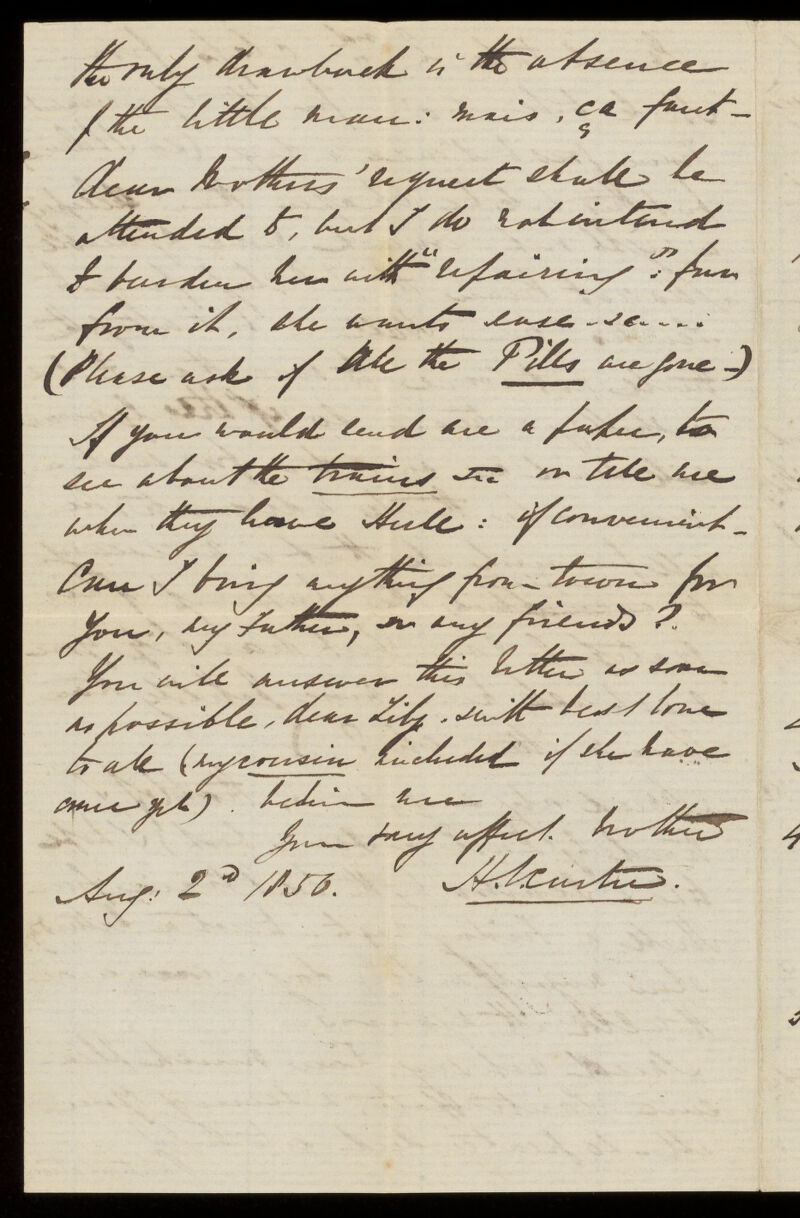 the only drawback is the absence
of the little man: mais, ça faut -
dear Mother's request shall be
attended to, but I do not intend
to burden her with "repairing": far
from it, she wants ease
(Please ask if all the Pills are gone -)
If you would send me a paper, to
see about the trains &c or tell me
when they leave Hull: if convenient -
Can I bring anything from town for
you, my Father, or any friends?
You will answer this letter as soon
as possible, dear Lily. with best love
to all (my cousin included if she have
come yet). believe me
Your very affect. brother
Aug: 2d 1856. H.V. Carter.